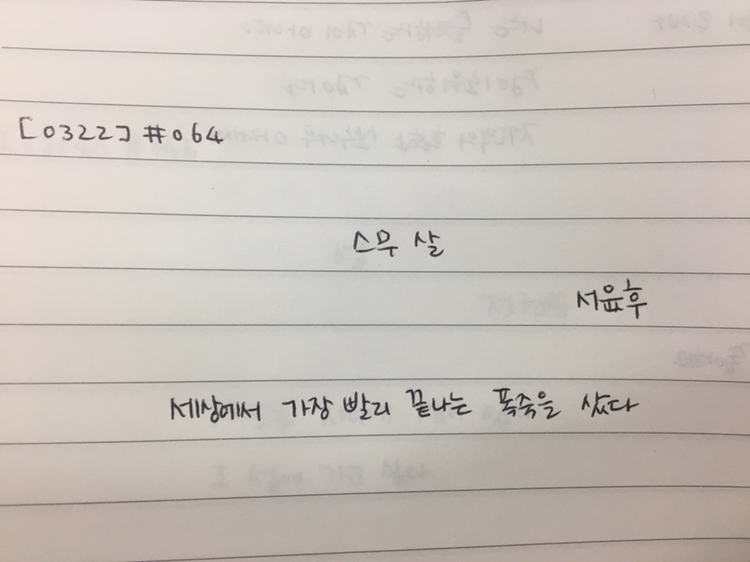 [0322] #064
스무 살
서윤후
세상에서 가장 빨리 끝나는 폭죽을 샀다